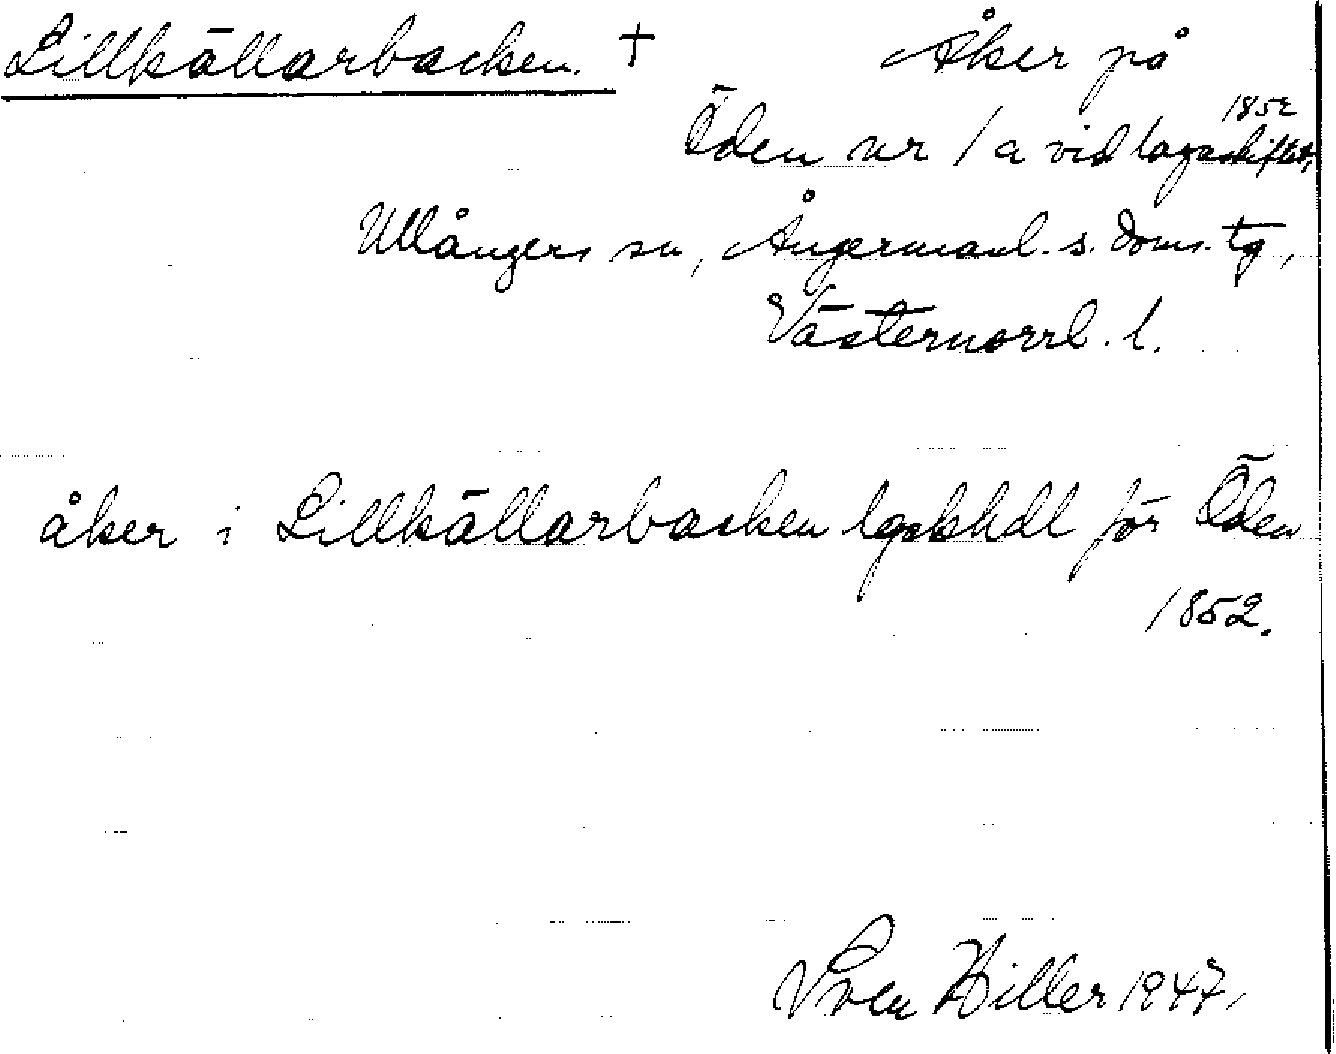 Lillkällarbacken. + Åker på
Öden nr 1 a vid lagaskiftet, 1852
Ullångers sn, Ångermanl. s. doms. tg,
Västernorrl. l.
åker i Lillkällarbacken lgskhdl för Öden
1852.
Sven Hiller 1947.